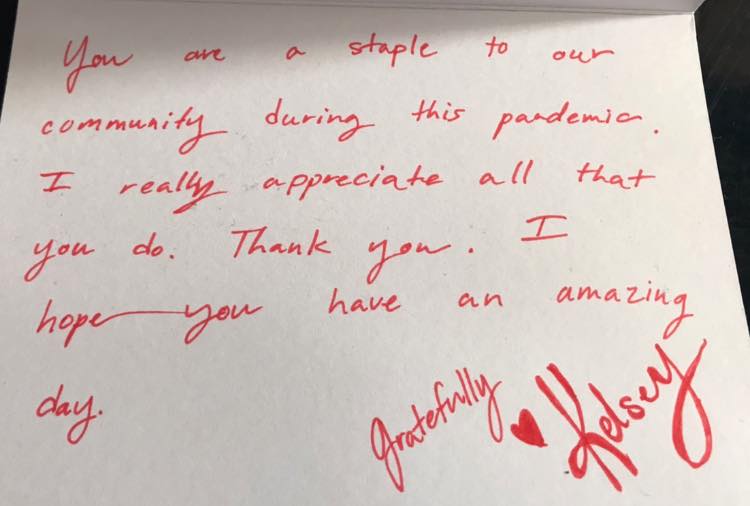 You are a staple to our
community during this pandemic.
I really appreciate all that
you do. Thank you. I
hope you have an amazing
day.
Gratefully ♥ Kelsey